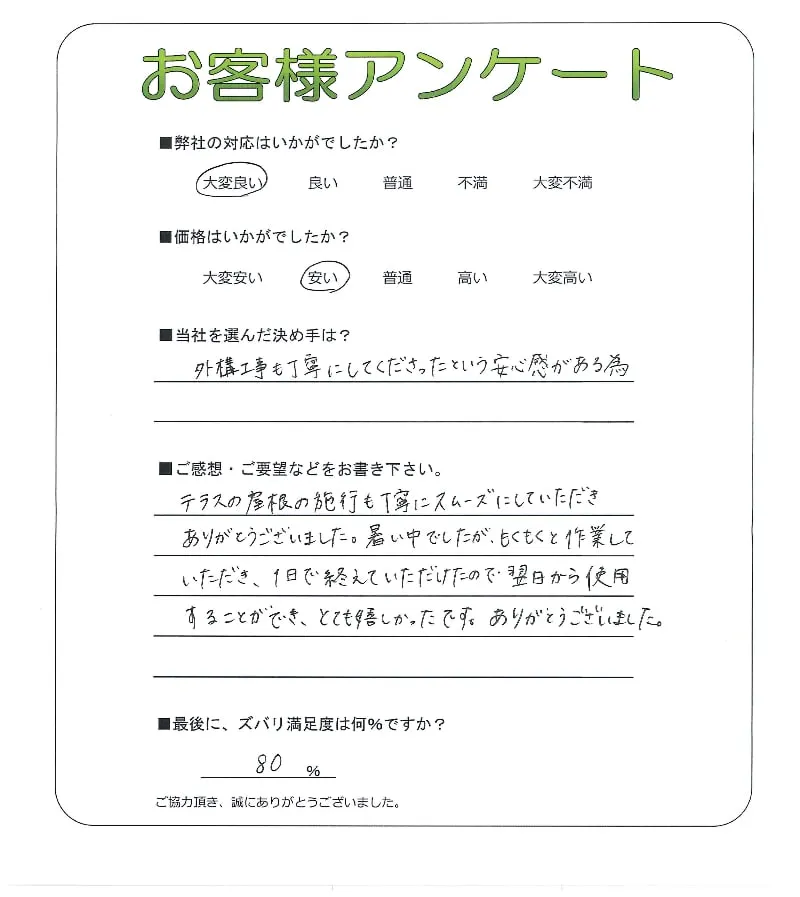 お客様アンケート
■弊社の対応はいかがでしたか？
大変良い 良い 普通 不満 大変不満
■価格はいかがでしたか？
大変安い 安い 普通 高い 大変高い
■当社を選んだ決め手は？
外構工事も丁寧にしてくださったという安心感がある為
■ご感想・ご要望などをお書き下さい。
テラスの屋根の施行も丁寧にスムーズにしていただき
ありがとうございました。暑い中でしたが、もくもくと作業して
いただき、1日で終えていただけたので翌日から使用
することができ、とても嬉しかったです。ありがとうございました。
■最後に、ズバリ満足度は何%ですか？
80 %
ご協力頂き、誠にありがとうございました。